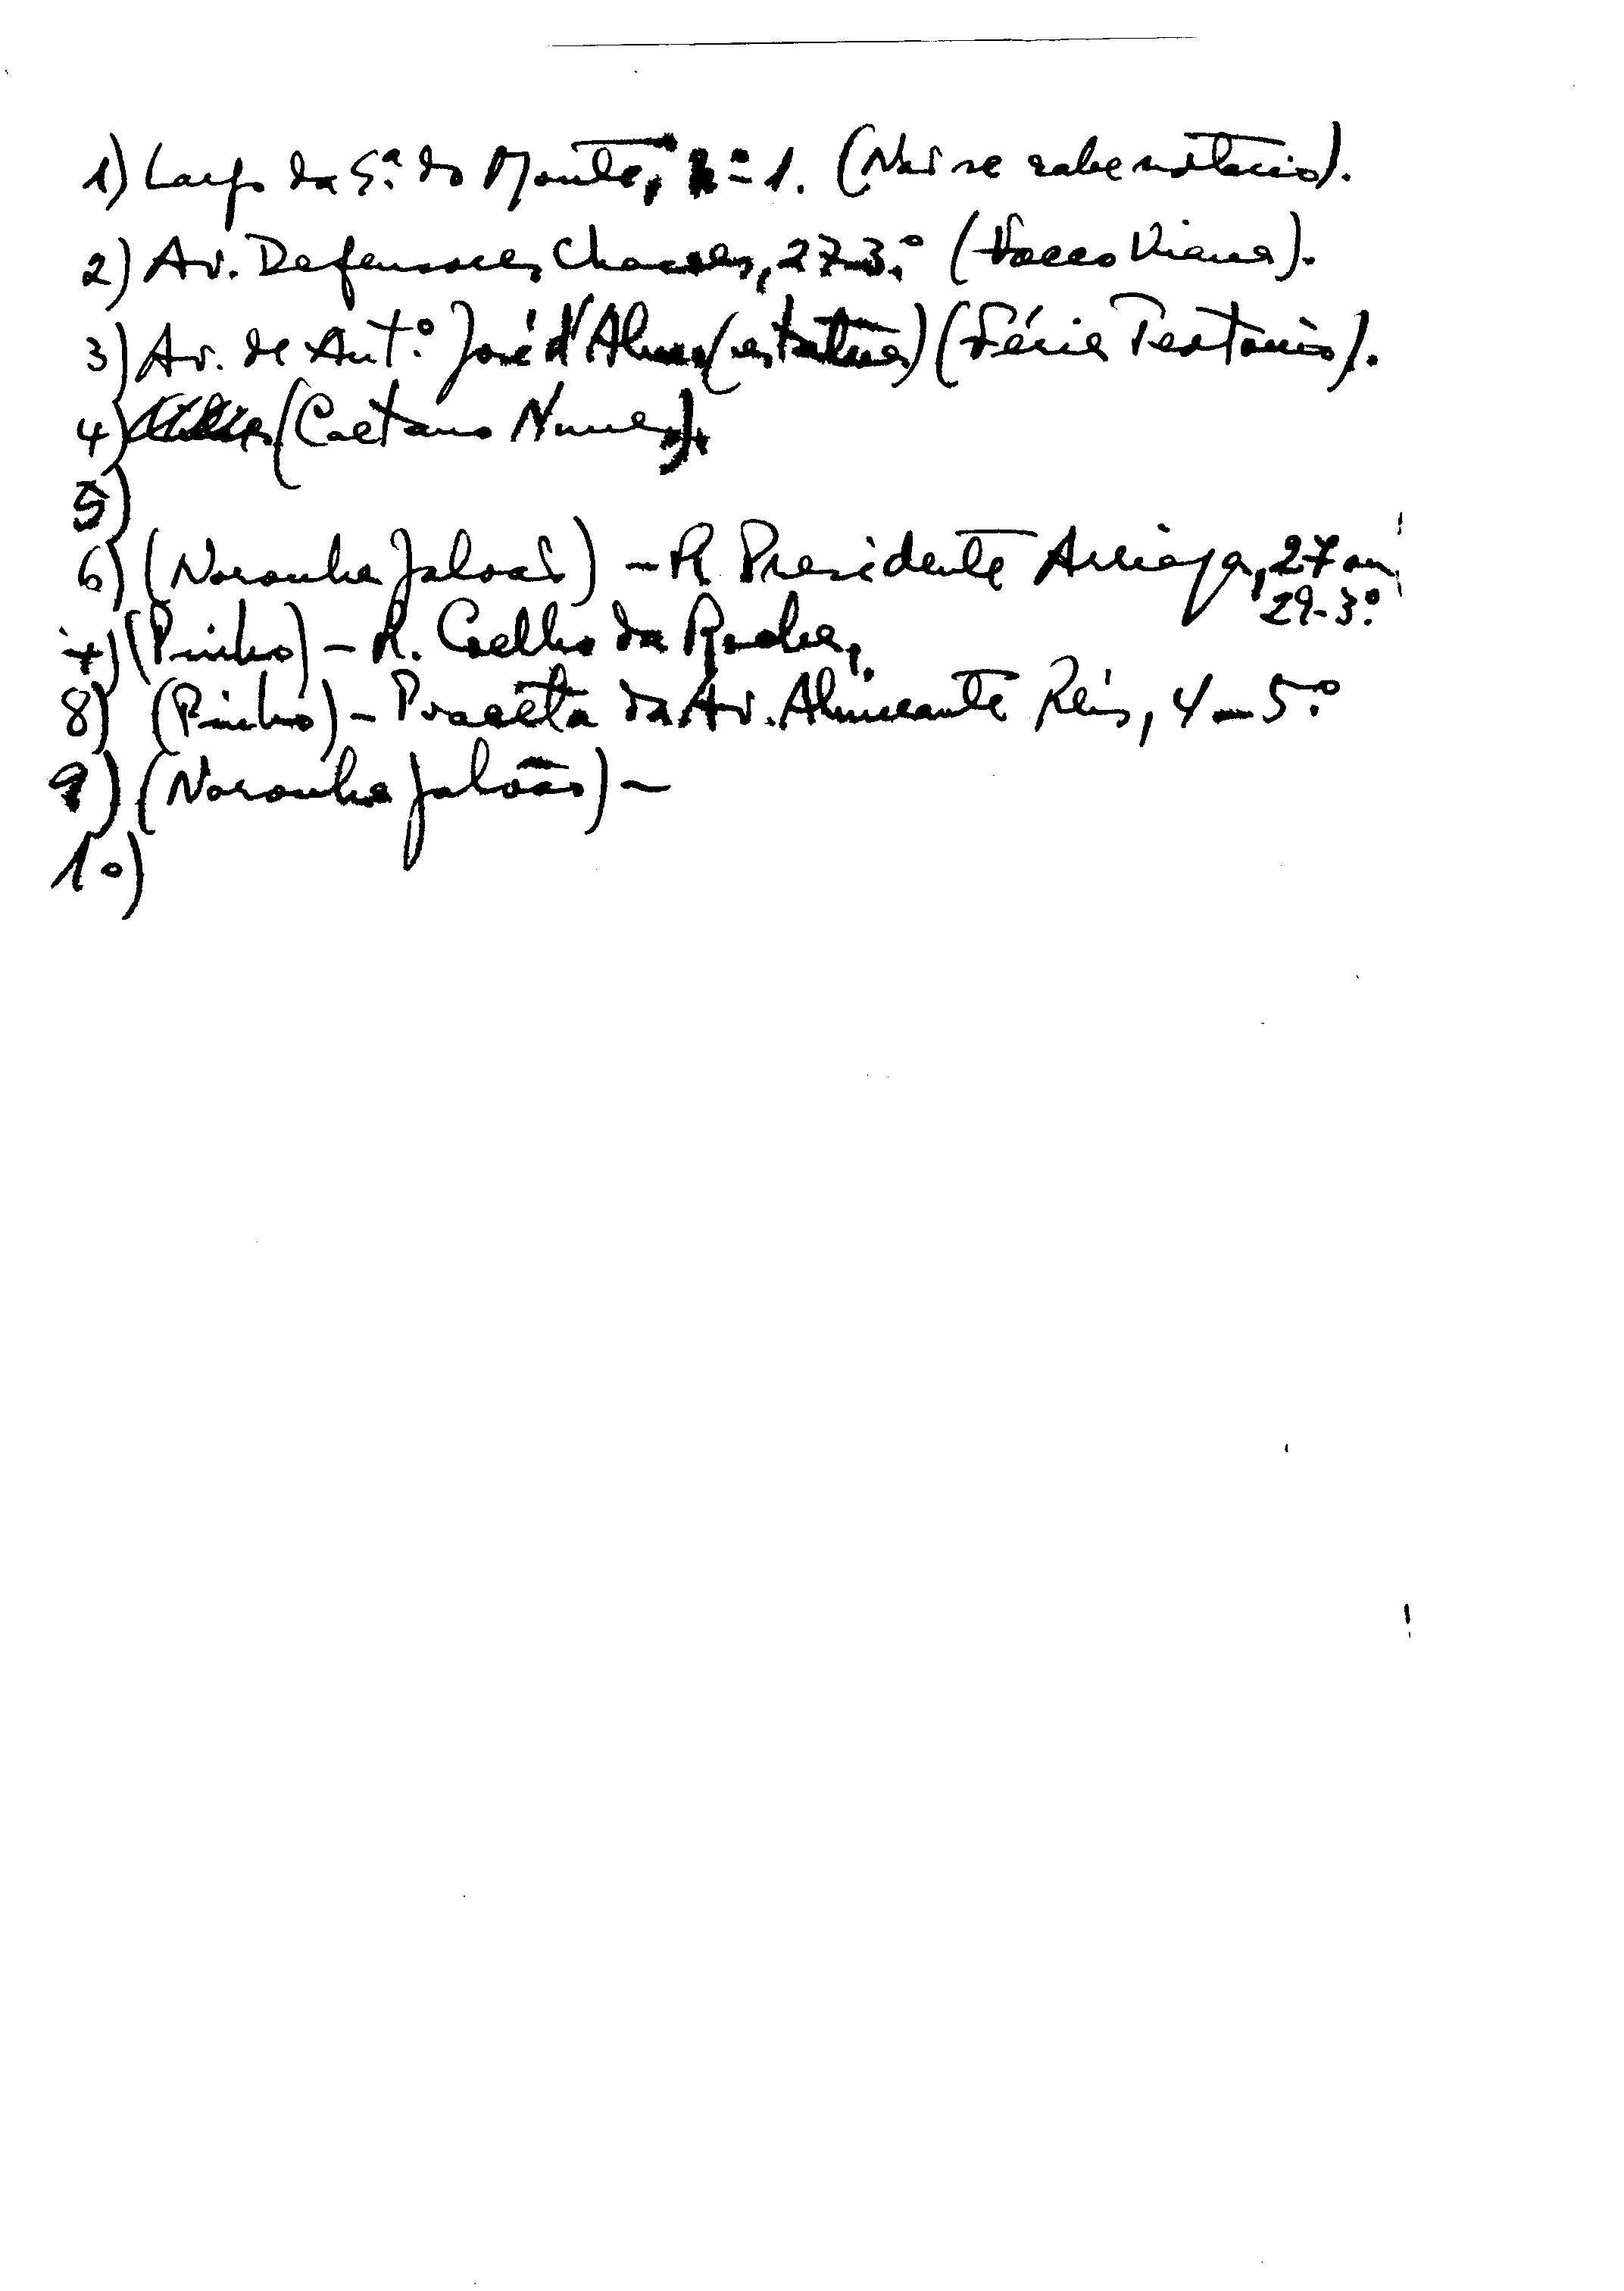 1) Largo da S.ª do Monte, nº 1. (Não se sabe notário).
2) Av. Defensores Chaves, 27-3.º (Vasco Viana).
3) Av. de Ant.º José d'Alm (estátua) (Férias Testório).
4) (Caetano Nunes).
5)
6) (Noronha Galvão) – R. Presidente Arriaga, 27 ou
29-3.º
7) (Pinho) – R. Coelho da Rocha,
8) (Pinho) – Praceta da Av. Almirante Reis, 4 – 5.º
9) (Noronha Galvão) –
10)